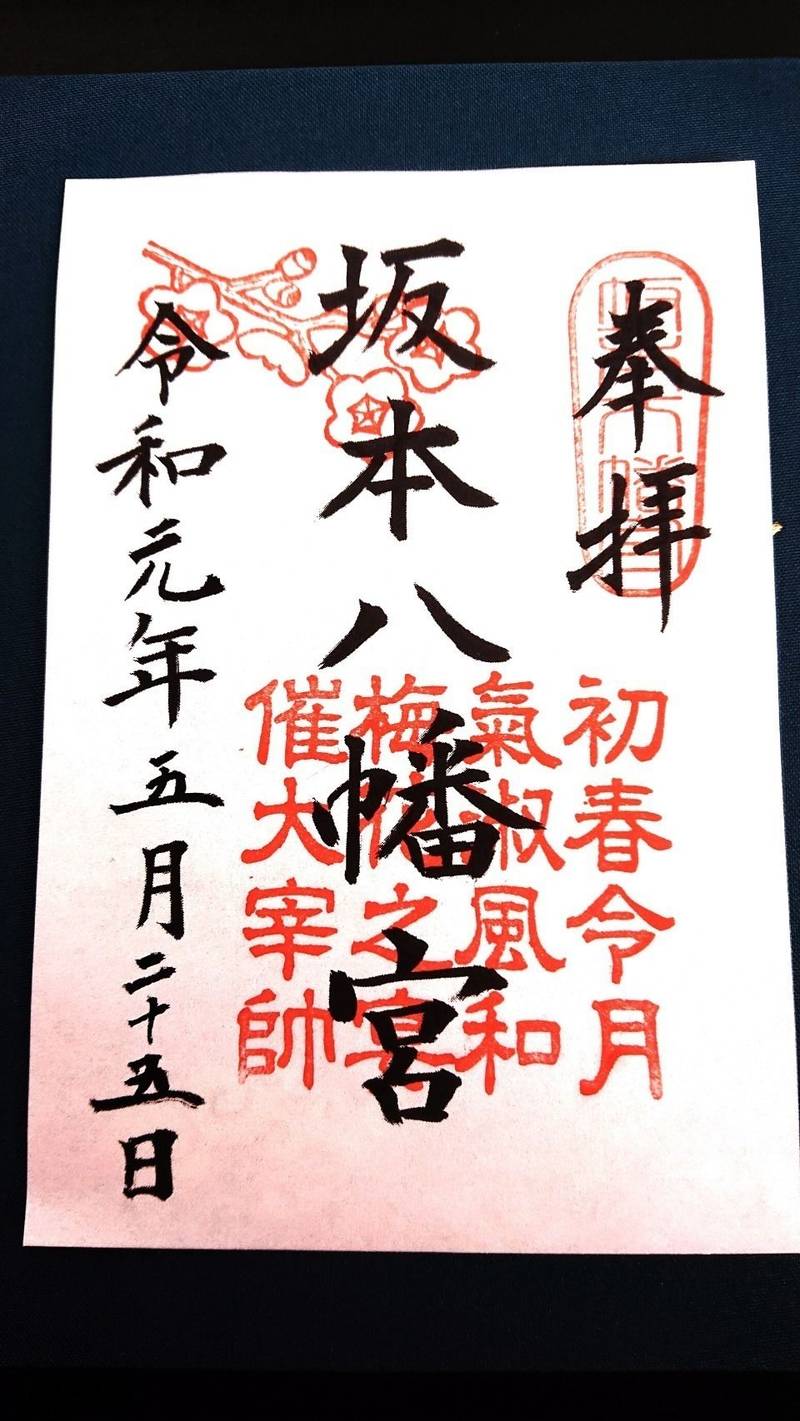 奉拝
初春令月
氣淑風和
坂本八幡宮
梅花之宴
催大宰帥
令和元年五月二十五日